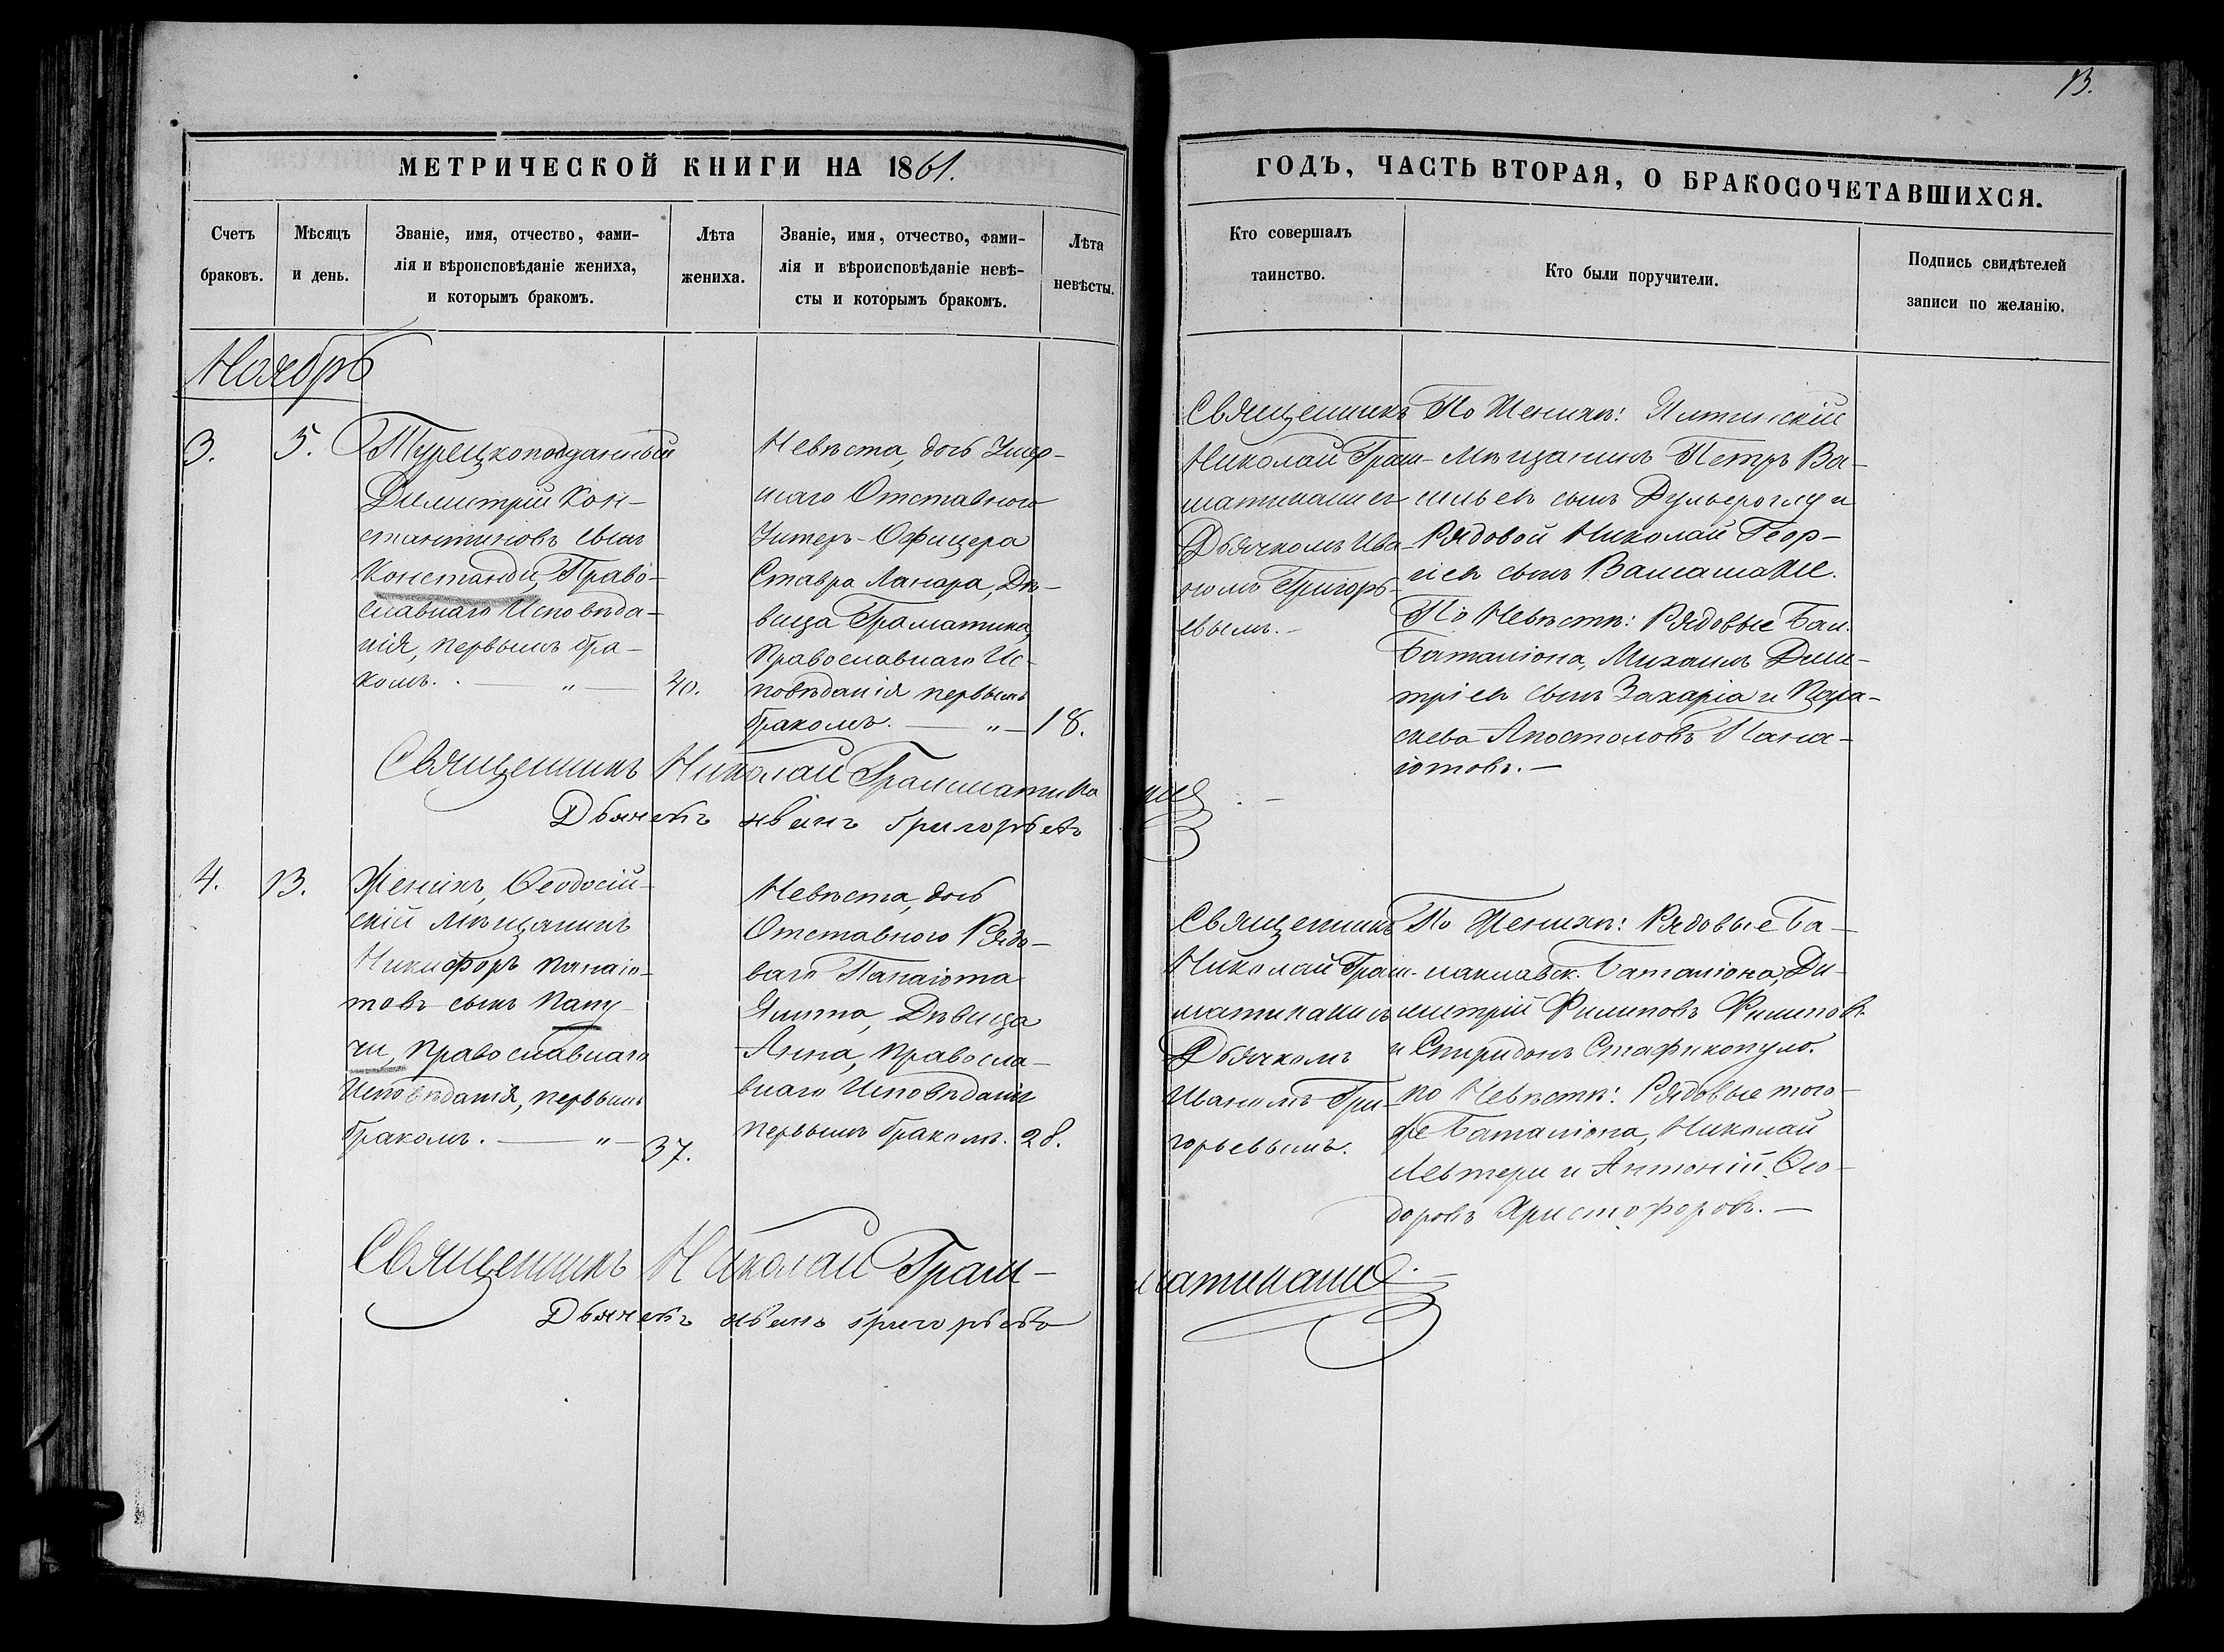 13.
МЕТРИЧЕСКОЙ КНИГИ НА 1861.
ГОДЪ, ЧАСТЬ ВТОРАЯ, О БРАКОСОЧЕТАВШИХСЯ.
Счетъ
браковъ.
Мѣсяцъ
и день.
Званіе, имя, отчество, фами-
лія и вѣроисповѣданіе жениха,
и которымъ бракомъ.
Лѣта
жениха.
Званіе, имя, отчество, фами-
лія и вѣроисповѣданіе невѣ-
сты и которымъ бракомъ.
Лѣта
невѣсты.
Кто совершалъ
таинство.
Кто были поручители.
Подпись свидѣтелей
записи по желанію.
Ноябрь
3.
5.
Турецкоподданный
Димитрій Кон-
стантиновъ сынъ
Констанди, Право-
славнаго Исповѣда-
нія, первымъ бра-
комъ. — „ —
40.
Невѣста, дочь Умер-
шаго Отставного
Унтеръ-Офицера
Ставра Ланара, Дѣ-
вица Граматика,
Православнаго Ис-
повѣданія первымъ
бракомъ. — „ —
18.
Священникъ
Николай Грам-
матикаки съ
Дьячкомъ Ива-
номъ Григорь-
евымъ. —
По Женихѣ: Ялтинскій
Мѣщанинъ Петръ Ва-
сильевъ сынъ Дульгероглу и
Рядовой Николай Геор-
гіевъ сынъ
По Невѣстѣ: Рядовые Бал.
Баталіона, Михаилъ Дми-
тріевъ сынъ Захаріа и Пара-
скева Апостоловъ Пана-
іотовъ. —
Священникъ Николай Грамматика
Дьячекъ Иванъ Григорьевъ
4.
13.
Женихъ, Ѳеодосій-
скій Мѣщанинъ
Никифоръ Панаіо-
товъ сынъ Папу-
чи, Православнаго
Исповѣданія, первымъ
бракомъ. — „ —
37.
Невѣста, дочь
Отставного Рядо-
ваго Панаіота
Ялита, Дѣвица
Анна, Правосла-
внаго Исповѣданія
первымъ бракомъ.
28.
Священникъ
Николай Грам-
матикаки съ
Дьячкомъ
Иваномъ Гри-
горьевымъ.
По Женихѣ: Рядовые Ба-
лаклавск. Баталіона, Ди-
митрій Филиповъ Филиповъ
и Спиридонъ Стафикопуло.
по Невѣстѣ: Рядовые того-
же Баталіона, Николай
Левтери и Антоній Ѳео-
доровъ Христофоровъ. —
Священникъ Николай Грам-
матикаки
Дьячекъ Иванъ Григорьевъ